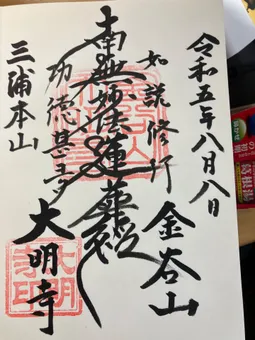 令和五年八月八日
金谷山
如説修行
南無妙法蓮華経
功徳甚多
大明寺
三浦本山